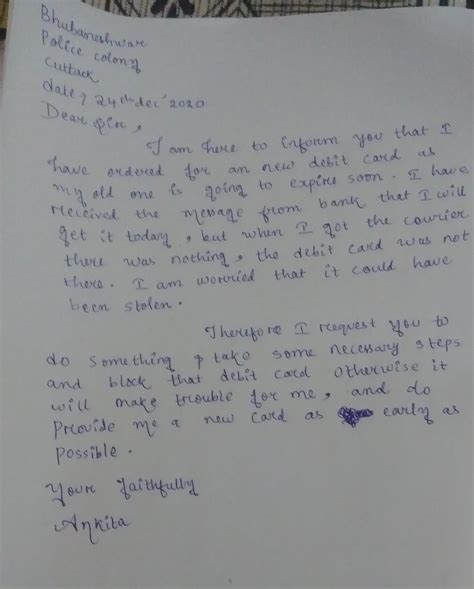 Bhubaneshwar
Police colony
Cuttack
date, 24th dec' 2020
Dear Sir,
I am here to inform you that I
have ordered for an new debit card as
my old one is going to expire soon. I have
received the message from bank that I will
get it today, but when I got the courier
there was nothing, the debit card was not
there. I am worried that it could have
been stolen.
Therefore I request you to
do something & take some necessary steps
and block that debit card otherwise it
will make trouble for me, and do
provide me a new card as early as
possible.
Your faithfully
Ankita